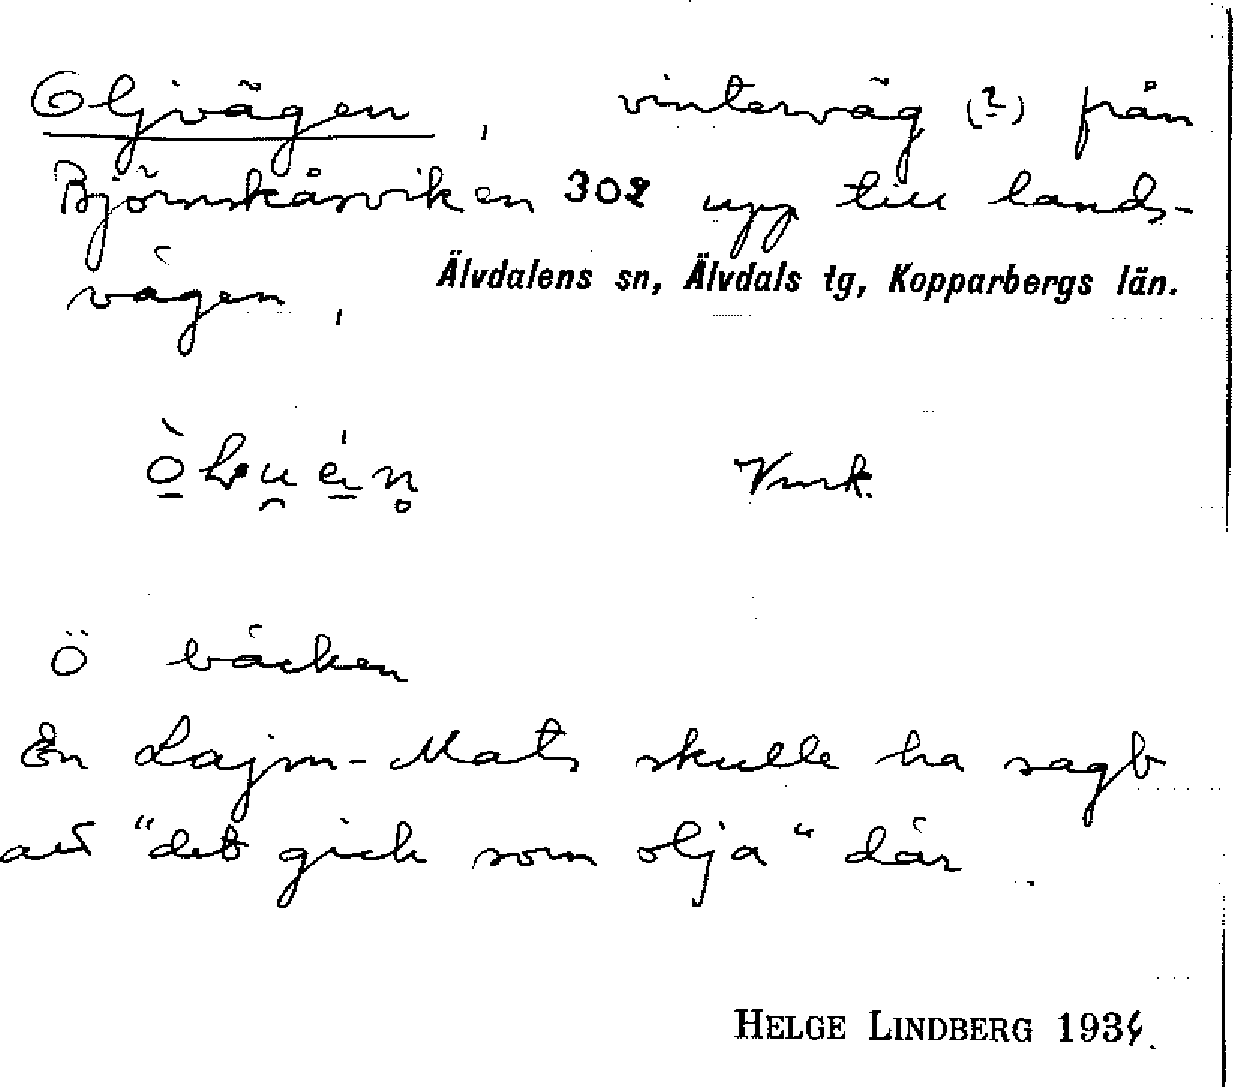 Oljvägen, vinterväg (?) från
Björnskårviken 302 upp till lands-
vägen,
Älvdalens sn, Älvdals tg, Kopparbergs län.
Vmrk.
Ö bäcken
En Lajm-Mats skulle ha sagt
att "det gick som olja" där.
HELGE LINDBERG 1934.